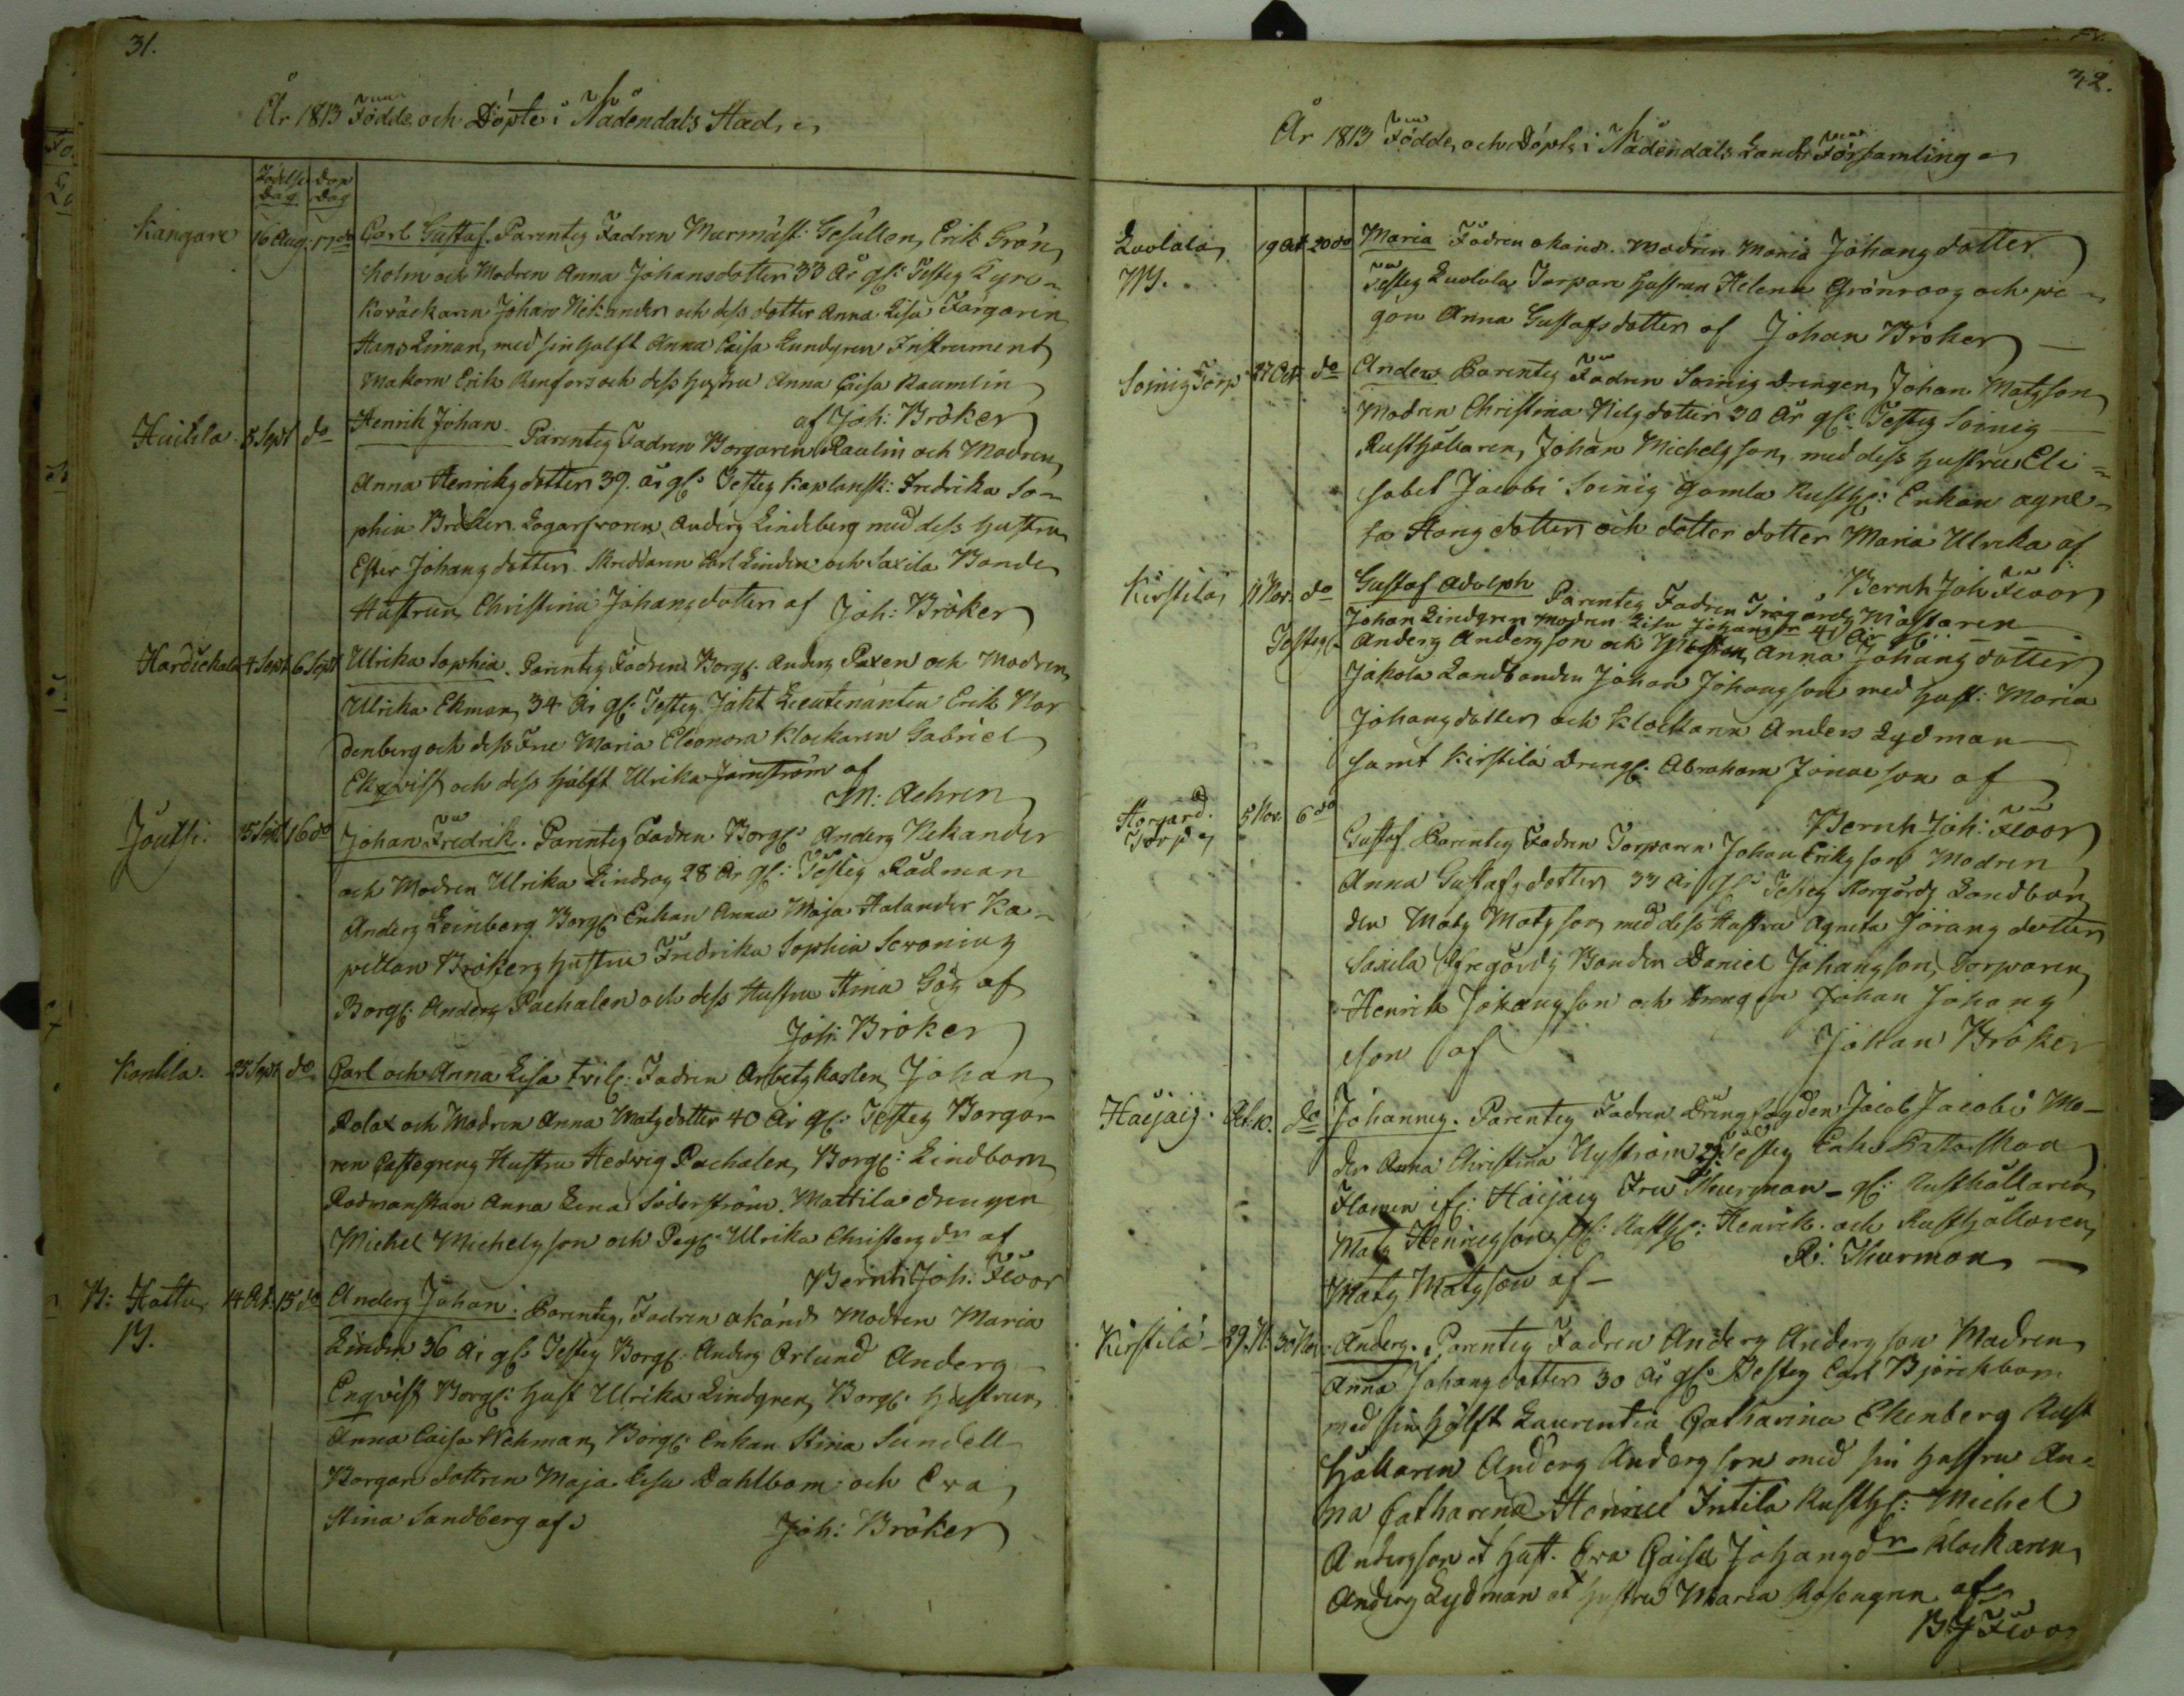 31.
År 1813 Födde, och Döpte i Nådendals Stad
Födelse Dag
dop Dag
Kangare 16 Aug: 17 do Carl Gustaf. Parentes Fadren Murmäst: Gesällen, Erik Grön
holm och Modren Anna Johansdotter 33 År gl: Testes Kyro-
Hans Ziman, med sin hälft Anna Caisa Lundgren Instrument
Makorn Erik Renfors och dess hustru Anna Caisa Raumlin
af Joh: Bröker
Huikla 5 Sept do Henrik Johan. Parentes Fadren Borgaren Raulin och Modren
Anna Henriksdotter 39. år gl: Testes Kaplansk: Fredrika So-
phia Bröker. Logarfvaren, Anders Lindeberg med dess hustru
Ester Johansdotter. Skreddaren Carl Linden och Saxila Bonde
Hustrun Christina Johansdotter af Joh: Bröker
Hardickala 4 Sept 6 Sept Ulrika Sophia. Parentes Fadren Borg: Anders Paxen och Modren
Ulrika Ekman, 34 År gl: Testes Jakt Lieutenanten Erik Nor
denberg och dess Frue Maria Eleonora Klockaren Gabriel
Ekqvist och dess hälft Ulrika Jernström af
M: Achren
Joutsi. 15 Sept 16 do Johan Fredrik. Parentes Fadren Borg: Anders Nekander
och Modren Ulrika Lindros 28 År gl: Testes Rådman
Anders Leinberg Borg: Enkan Anna Maja Halander Ka-
pellan Brökers hustru Fredrika Sophia Seronius
Borg: Anders Pachalen och dess Hustru Stina Gös af
Joh: Bröker
Konkla. 25 Sept do Carl och Anna Lisa tvil: Fadren Arbetskarlen Johan
Rolax och Modren Anna Matsdotter 40 År gl: Testes Borga
ren Castegrens Hustru Hedvig Pachalen, Borg: Lindbom
Rodmanskan Anna Lena Söderström. Mattila drengen
Michel Michelsson och Pig: Ulrika Christersdr af
Bernh: Joh: Floor
B: Hattu 14 Oct: 15 do Anders Johan. Parentes, Fadren okänd Modren Maria
B.
Linden 36 År gl: Testes Borg: Anders Orlund Anders
Enqvist Borg: hust Ulrika Lindgren, Borg: hustrun
Anna Caisa Wekman, Borg: Enkan Stina Sundell
Borgare dottren Maja Lisa Dahlbom och Eva
Stina Sandberg af
Joh: Bröker
32.
År 1813 Födde, och Döpte i Nådendals Lands Församling
Luolala 19 Oct 20 do Maria Fadren okänd. Modren Maria Johansdotter
Testes Luolala Torpare hustrun Helena Grönroos och pi-
gan Anna Gustafsdotter af Johan Bröker
Soinis Torp 27 Oct do Anders Parentes Fadren Soinis Drengen Johan Matsson
Modren Christina Nilsdotter 30 År gl: Testes Soinis
Rusthållaren, Johan Michelsson, med dess hustru Eli-
sabet Jacobi Soinis Gamla Rusth: Enkan agne-
ta Hansdotter och dotter dotter Maria Ulrika af
Bernh Joh Floor
Kirstilä 11 Nov. do Gustaf Adolph Parentes Fadren Trägårds Mästaren
Johan Lindgren Modren Lisa Johansdr 41 År gl:
Testes Anders Andersson och Anna Johansdotter
Jakola Landbonden Johan Johansson med hust: Maria
Johansdotter och Klockaren Anders Lydman
samt Kirstilä Dreng: Abraham Jonasson af
Bernh Joh: Floor
Storgård. Torp 5 Nov. 6 do
Gustaf Parentes Fadren Torparen Johan Eriksson Modren
Anna Gustafsdotter 33 År gl: Testes Storgårds Landbon
den Mats Matsson med dess Hustru Agneta Jöransdotter
Saxila Öfregårds Bonden Daniel Johansson, Torparen
Henrik Johansson och drengen Johan Johans
son af Johan Bröker
Haijais. Oct. 10. do Johannes. Parentes Fadren Drengfogden Jacob Jacobi Mo-
der Anna Christina Nyström 29 Testes Enke Pastorskan
Flomen Haijais Fru Thurman gl: Rusthållaren
Mats Henricsson Henrik. och Rusthållaren
Mats Matsson af- R: Thurman
Kirstilä 29. N. 30 Nov: Anders. Parentes Fadren Anders Andersson Madren
Anna Johansdotter 30 År gl: Testes Carl Björckbom
med sin hälft Laurentia Catharina Ekenberg Rust
hållaren Anders Andersson med sin hustru An-
na Catharina Henric Intila Rusth: Michel
Andersson et hust. Eva Caisa Johansdr Klockaren
Anders Lydman et hustru Maria Rosengren af
B J Floor